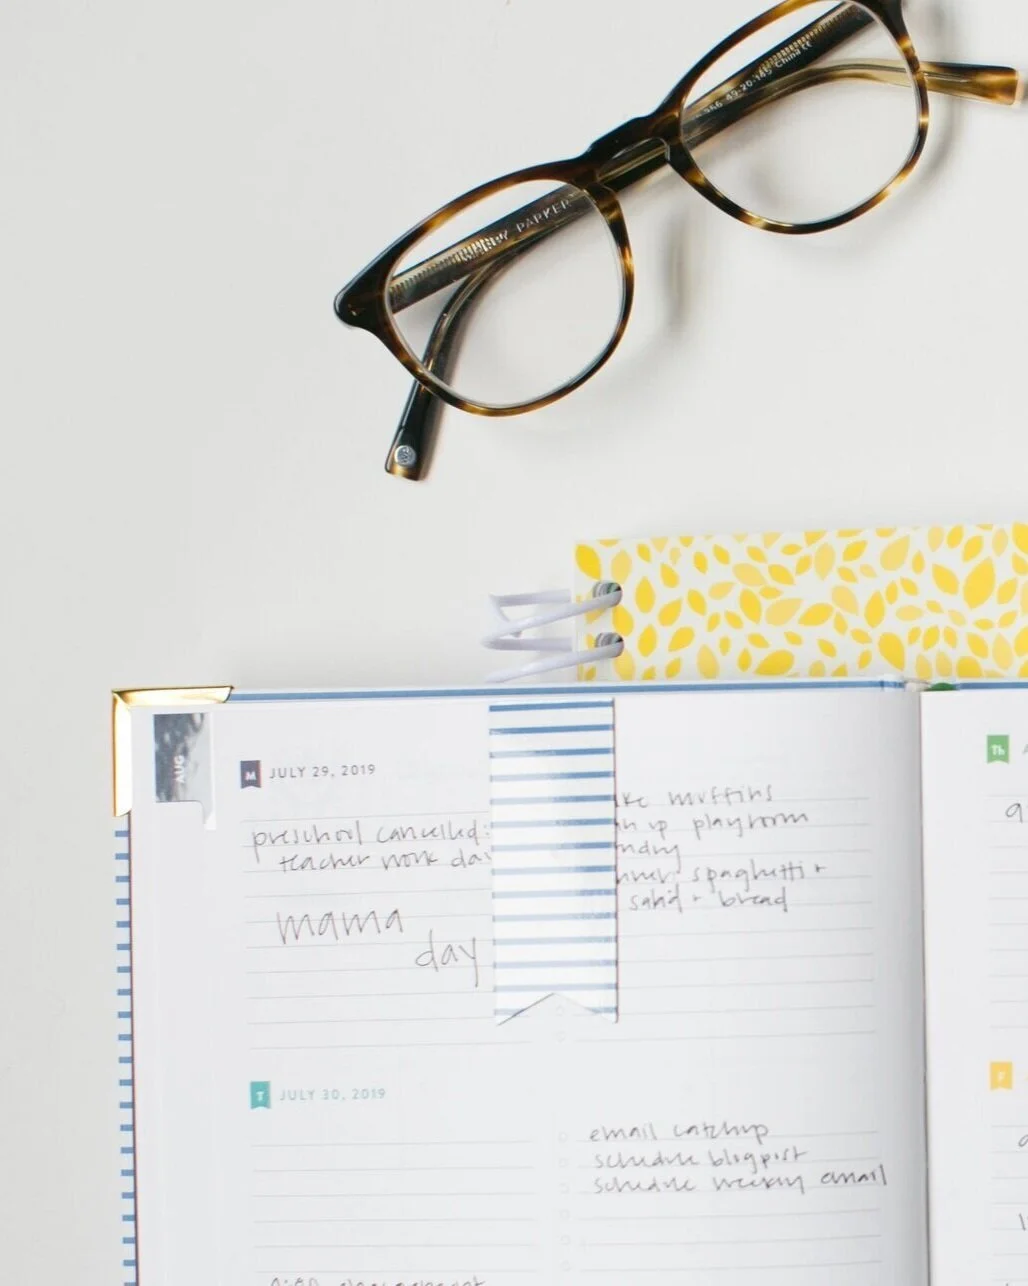 49-20-145 China CE
WARBY PARKER
AUG
M JULY 29, 2019
preschool cancelled:
teacher work day
mama
day
muffins
up playroom
spaghetti +
salad + bread
Th
T JULY 30, 2019
F
email catchup
schedule blogpost
schedule weekly email